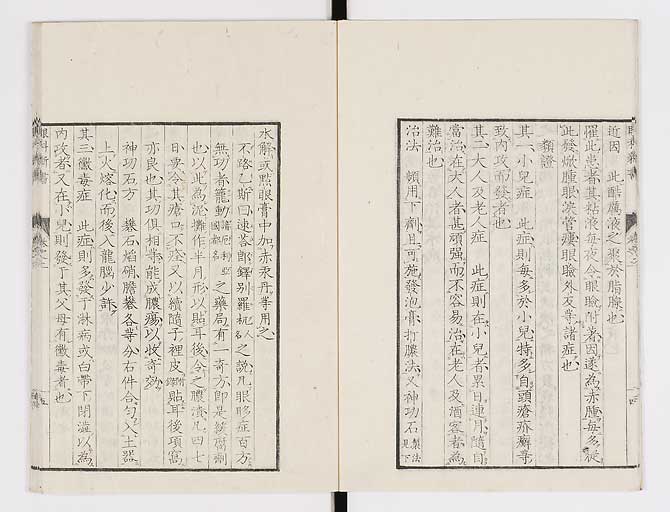 近因　此酷厲液之聚於脂腺也
罹此患者其粘液每夜令眼瞼附著因遂為赤腫每多従
此發焮腫眼涙管瘻眼瞼外反等諸症也
類證
其一小兒症　此症則每多於小兒特多自頭瘡疥癬等
致內攻而發者也
其二大人及老人症　此症則在小兒者累日連月隨自
當治在大人者甚頑强而不容易治在老人及酒客者為
難治也
治法　頻用下劑且可施發泡膏打膿法又神功石製法見下
水解或點眼膏中加赤汞丹等用之
不路乙斯曰速荅郎鐸別羅杌人名之說凡眼眵症百方
無功者龍動諳厄利亜國都名之藥局有一奇方即是皺腐劑
也以此為泥攤作半月形以貼耳後令之膿潰凡四七
日要令其瘡口不痊又以續隨子裡皮貼耳後項窩
亦良也其功俱相等能成膿瘍以收奇効
神功石方　礬石焰硝膽礬各等分右件合匀入土器
上火熔化而後入龍腦少許
其三黴毒症　此症則多發于淋病或白帶下閉澁以為
內攻者又在小兒則發于其父母有黴毒者也
眼科新書